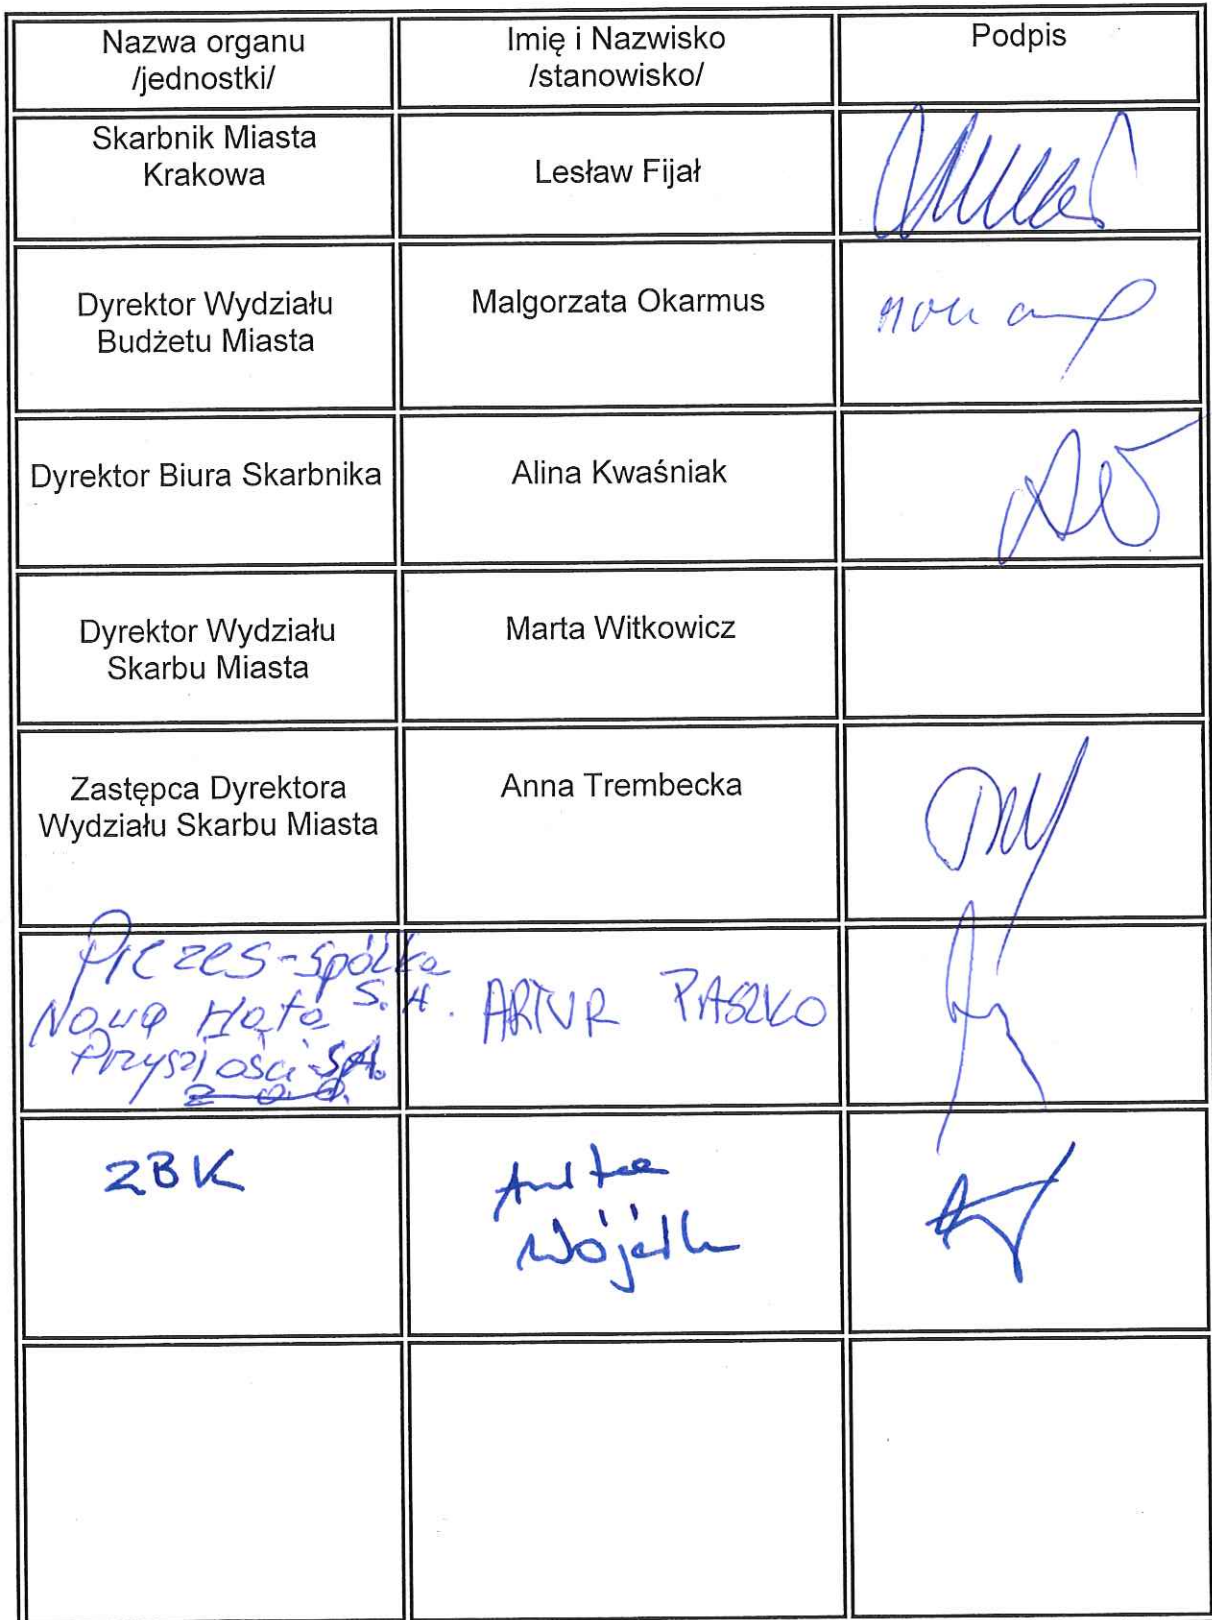 Nazwa organu
/jednostki/
Imię i Nazwisko
/stanowisko/
Podpis
Skarbnik Miasta
Krakowa
Lesław Fijał
Dyrektor Wydziału
Budżetu Miasta
Malgorzata Okarmus
Dyrektor Biura Skarbnika
Alina Kwaśniak
Dyrektor Wydziału
Skarbu Miasta
Marta Witkowicz
Zastępca Dyrektora
Wydziału Skarbu Miasta
Anna Trembecka
Prezes-Spółka
Nowa Huta S.A.
Przyszłości S.A.
z o.o.
ARTUR PASZKO
ZBK